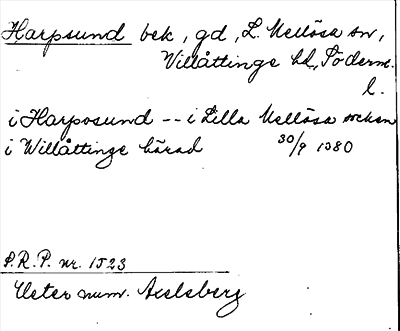 Harpsund bek, gd, L. Mellösa sn,
Villåttinge hd, Söderm.
l.
i Harposund -- i Lilla Mellösa soken
i Willåttinge härad 30/9 1380
P.R.P. nr. 1523
Uster num. Axelsberg